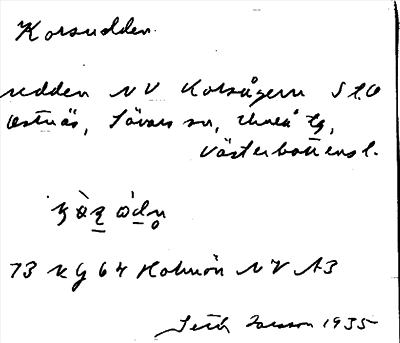 Korsudden.
udden NV Korsågern S t.O
Ostnäs, Sävars sn, Umeå tg,
Västerbottens l.
73 kg 64 Holmön NV A3
Seth Larsson 1935